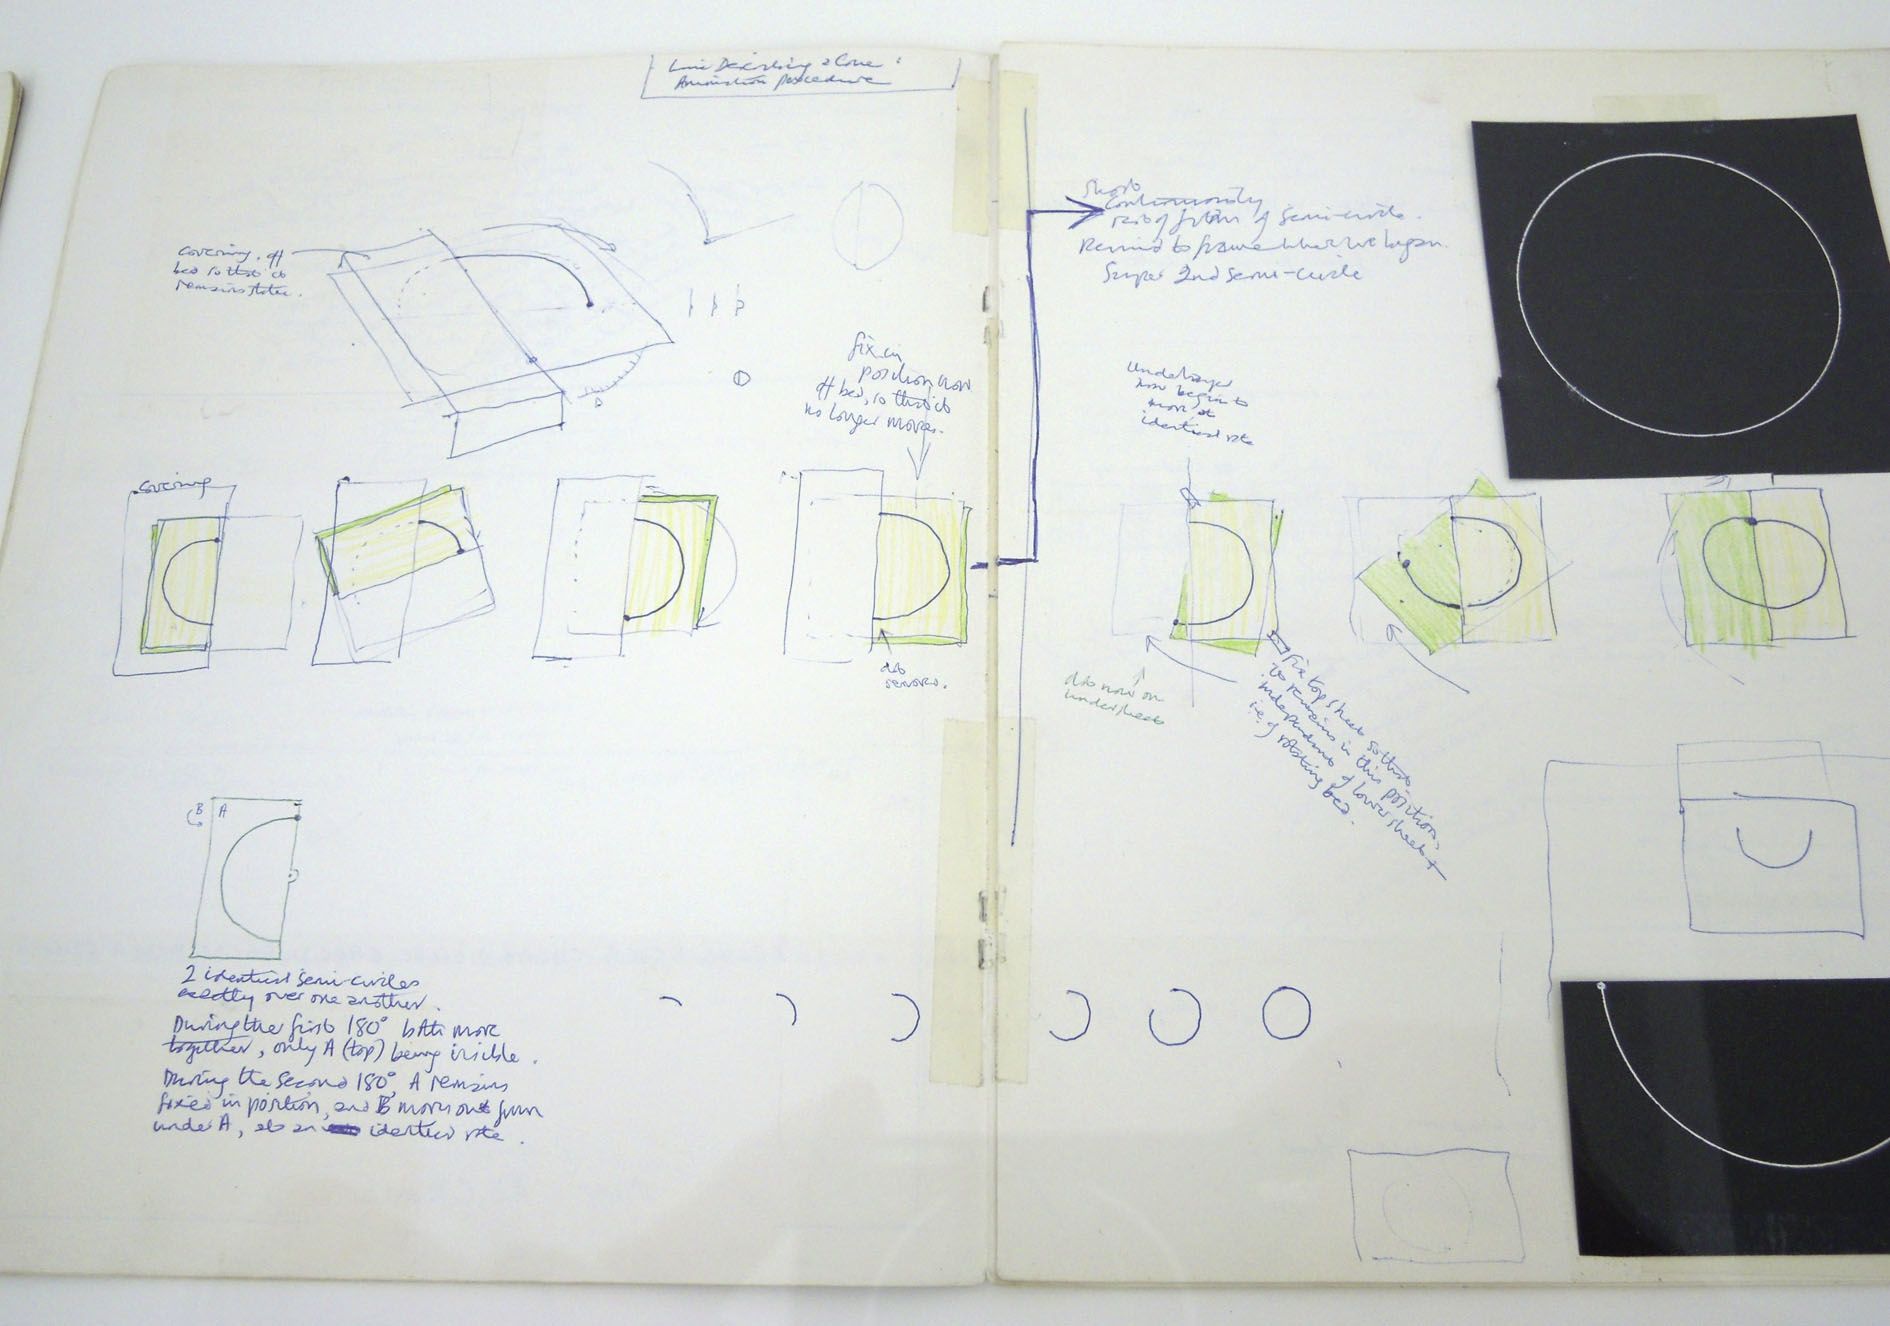 Line Describing a Cone:
Animation procedure
covering, off
bed so that it
remains static.
fix in
position now
off bed, so that it
no longer moves.
covering
dot
removed.
B A
2 identical semi-circles
exactly over one another.
During the first 180° both move
together, only A (top) being visible.
During the second 180°, A remains
fixed in position, and B moves out from
under A, at an identical rate.
Shoot
continuously
rest of semi-circle.
Rewind to frame where we began.
Super 2nd semi-circle
Underlayer
now begins to
move at
identical rate
dot now on
undersheet
fix top sheet so that
it remains in this position,
independent of lower sheet +
i.e. of rotating bed.